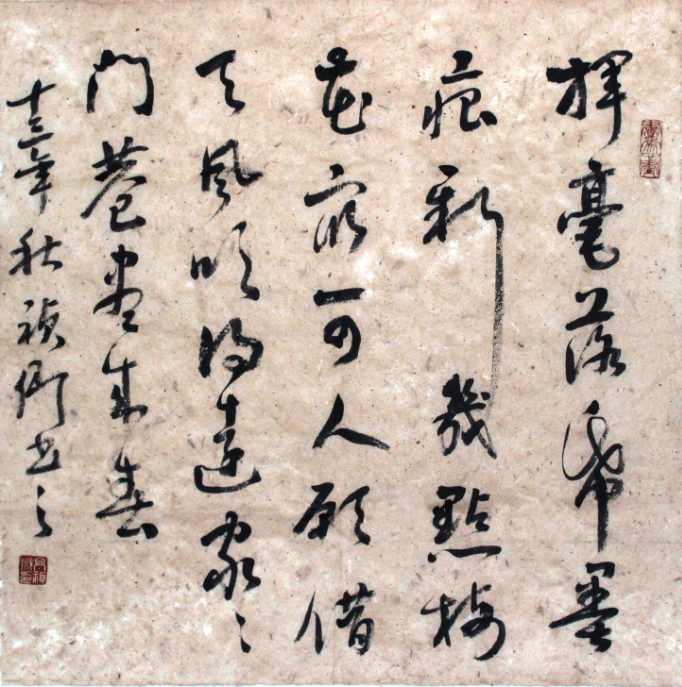 揮毫落帋墨
痕新幾點梅
花最可人願借
天風吹得遠家〻
門巷盡成春
十三年秋禎卿書之